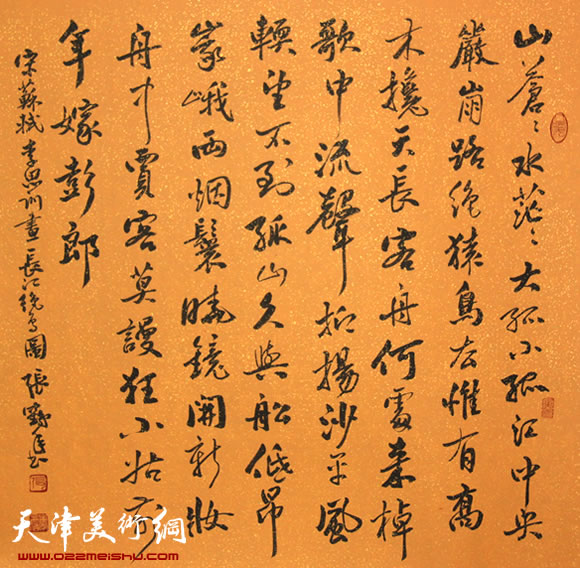 山蒼〻水茫〻大孤小孤江中央
巖崩路绝猿鳥去惟有高
木攙天長客舟何處来棹
歌中流聲抑揚沙平風
輭望不到孤山久與船低昂
峩峨兩烟鬟曉鏡開新妝
舟中賈客莫謾狂小姑前
年嫁彭郎
宋蘇軾李思训畫長江绝島圖 張
天津美術網
www.022meishu.com